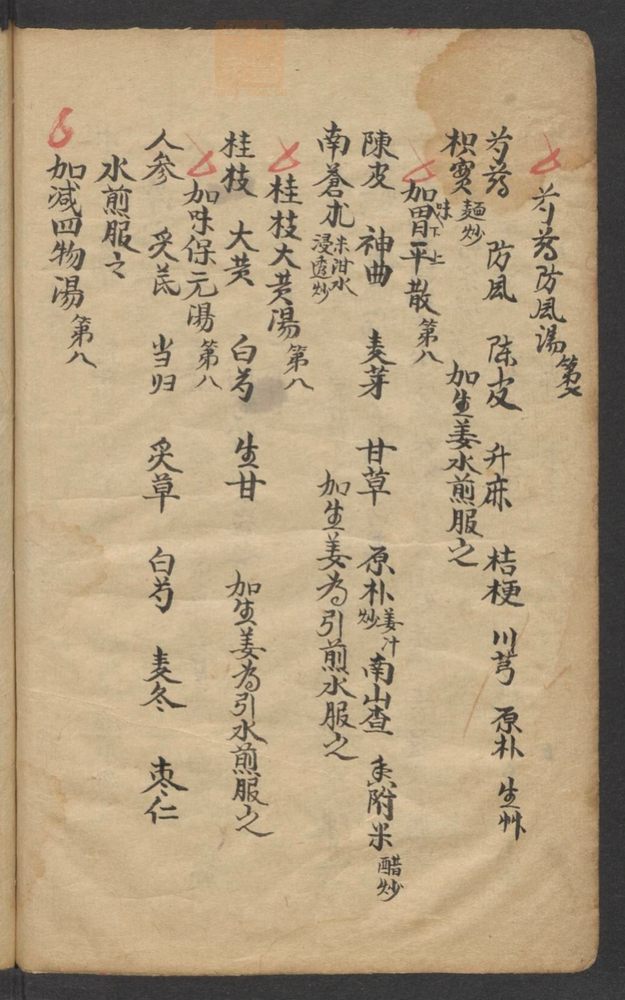 芍药防风湯 第七
芍药 防风 陈皮 升麻 桔梗 川芎 原朴 生艸
枳實 麺炒 加生姜水煎服之
加味下上胃平散 第八
陳皮 神曲 麦芽 甘草 原朴 姜汁炒 南山查 香附米 醋炒
南蒼朮 米泔水浸透炒 加生姜为引煎水服之
桂枝大黄湯 第八
桂枝 大黄 白芍 生甘 加生姜为引水煎服之
加味保元湯 第八
人参 炙芪 当归 炙草 白芍 麦冬 枣仁
水煎服之
加減四物湯 第八